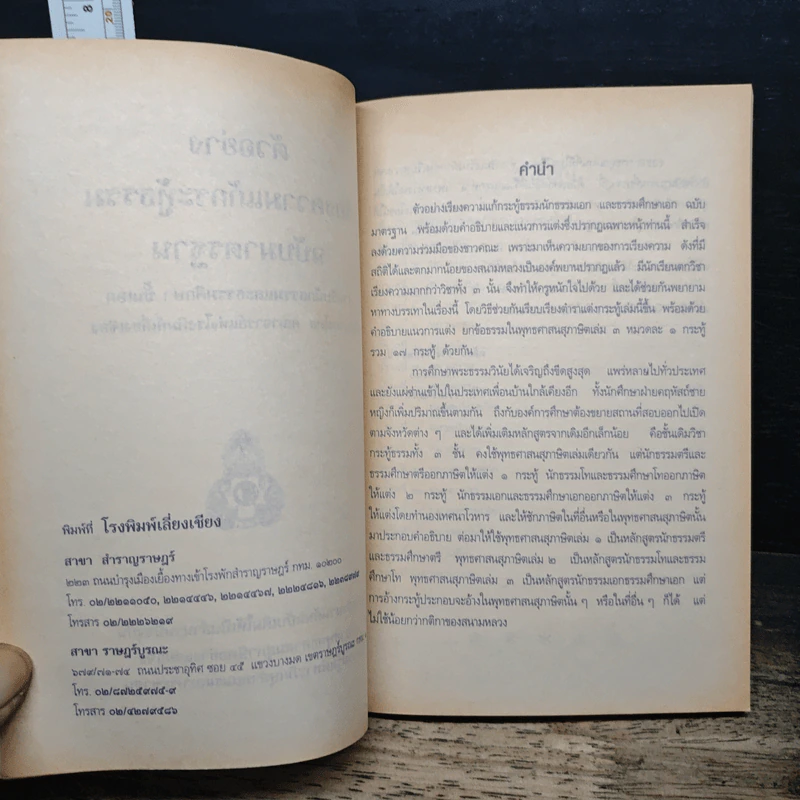 8
20
พิมพ์ที่ โรงพิมพ์เลี่ยงเชียง
สาขา สำราญราษฎร์
๒๒๓ ถนนบำรุงเมืองเยื้องทางเข้าโรงพักสำราญราษฎร์ กทม. ๑๐๒๐๐
โทร. ๐๒/๒๒๑๑๐๕๐, ๒๒๑๔๔๔๖, ๒๒๑๔๔๖๗, ๒๒๒๔๘๑๖,
โทรสาร ๐๒/๒๒๒๖๒๑๙
สาขา ราษฎร์บูรณะ
๖๗๙/๗๑-๗๔ ถนนประชาอุทิศ ซอย ๔๕ แขวงบางมด เขตราษฎร์บูรณะ
โทร. ๐๒/๘๗๒๕๙๗๕-๙
โทรสาร ๐๒/๔๒๗๙๕๘๖
คำนำ
ตัวอย่างเรียงความแก้กระทู้ธรรมนักธรรมเอก และธรรมศึกษาเอก ฉบับ
มาตรฐาน พร้อมด้วยคำอธิบายและแนวการแต่งซึ่งปรากฏเฉพาะหน้าท่านนี้ สำเร็จ
ลงด้วยความร่วมมือของชาวคณะ เพราะมาเห็นความยากของการเรียงความ ดังที่มี
สถิติได้และตกมากน้อยของสนามหลวงเป็นองค์พยานปรากฏแล้ว มีนักเรียนตกวิชา
เรียงความมากกว่าวิชาทั้ง ๓ นั้น จึงทำให้ครูหนักใจไปด้วย และได้ช่วยกันพยายาม
หาทางบรรเทาในเรื่องนี้ โดยวิธีช่วยกันเรียบเรียงตำราแต่งกระทู้เล่มนี้ขึ้น พร้อมด้วย
คำอธิบายแนวการแต่ง ยกข้อธรรมในพุทธศาสนสุภาษิตเล่ม ๓ หมวดละ ๑ กระทู้
รวม ๑๗ กระทู้ ด้วยกัน
การศึกษาพระธรรมวินัยได้เจริญถึงขีดสูงสุด แพร่หลายไปทั่วประเทศ
และยังแผ่ซ่านเข้าไปในประเทศเพื่อนบ้านใกล้เคียงอีก ทั้งนักศึกษาฝ่ายคฤหัสถ์ชาย
หญิงก็เพิ่มปริมาณขึ้นตามกัน ถึงกับองค์การศึกษาต้องขยายสถานที่สอบออกไปเปิด
ตามจังหวัดต่าง ๆ และได้เพิ่มเติมหลักสูตรจากเดิมอีกเล็กน้อย คือชั้นเดิมวิชา
กระทู้ธรรมทั้ง ๓ ชั้น คงใช้พุทธศาสนสุภาษิตเล่มเดียวกัน แต่นักธรรมตรีและ
ธรรมศึกษาตรีออกภาษิตให้แต่ง ๑ กระทู้ นักธรรมโทและธรรมศึกษาโทออกภาษิต
ให้แต่ง ๒ กระทู้ นักธรรมเอกและธรรมศึกษาเอกออกภาษิตให้แต่ง ๓ กระทู้
ให้แต่งโดยทำนองเทศนาโวหาร และให้ชักภาษิตในที่อื่นหรือในพุทธศาสนสุภาษิตนั้น
มาประกอบคำอธิบาย ต่อมาให้ใช้พุทธศาสนสุภาษิต เล่ม ๑ เป็นหลักสูตรนักธรรมตรี
และธรรมศึกษาตรี พุทธศาสนสุภาษิต เล่ม ๒ เป็นหลักสูตรนักธรรมโทและธรรม
ศึกษาโท พุทธศาสนสุภาษิต เล่ม ๓ เป็นหลักสูตรนักธรรมเอกธรรมศึกษาเอก แต่
การอ้างกระทู้ประกอบจะอ้างในพุทธศาสนสุภาษิตนั้น ๆ หรือในที่อื่น ๆ ก็ได้ แต่
ไม่ใช้น้อยกว่ากติกาของสนามหลวง